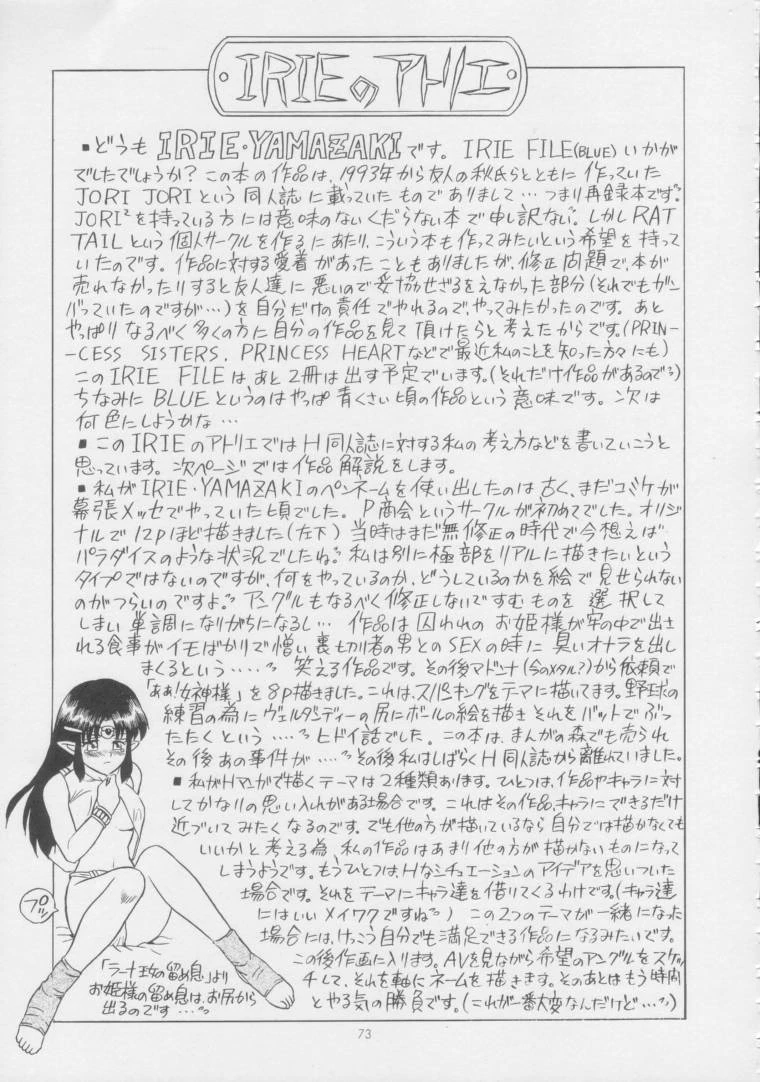 IRIEのアトリエ
■どうも IRIE・YAMAZAKIです。IRIE FILE(BLUE)いかが
でしたでしょうか？この本の作品は、1993年から友人の秋氏らとともに作っていた
JORI JORIという同人誌に載っていたものでありまして…つまり再録本です。
JORI²を持っている方には意味のないくだらない本で申し訳ない。しかしRAT
TAILという個人サークルを作るにあたり、こういう本も作ってみたいという希望を持って
いたのです。作品に対する愛着があったこともありましたが、修正問題で、本が
売れなかったりすると友人達に悪いので妥協せざるをえなかった部分(それでもガン
バっていたのですが…)を自分だけの責任でやれるので、やってみたかったのです。あと
やっぱりなるべく多くの方に自分の作品を見て頂けたらと考えたからです。(PRIN-
-CESS SISTERS. PRINCESS HEARTなどで最近私のことを知った方々にも)
このIRIE FILEはあと2冊は出す予定でいます。(それだけ作品があるので)
ちなみにBLUEというのはやっぱ青くさい頃の作品という意味です。次は
何色にしようかな…
■このIRIEのアトリエではH同人誌に対する私の考え方などを書いていこうと
思っています。次ページでは作品解説をします。
■私がIRIE・YAMAZAKIのペンネームを使い出したのは古く、まだコミケが
幕張メッセでやっていた頃でした。P商会というサークルが初めてでした。オリジ
ナルで12pほど描きました(左下)当時はまだ無修正の時代で今想えば
パラダイスのような状況でしたね。私は別に極部をリアルに描きたいという
タイプではないのですが、何をやっているのか、どうしているのかを絵で見せられない
のがつらいのですよ。アングルもなるべく修正しないですむものを選択して
しまい単調になりがちになるし…作品は囚われのお姫様が牢の中で出さ
れる食事がイモばかりで憎い裏切り者の男とのSEXの時に臭いオナラを出し
まくるという‥‥笑える作品です。その後マドンナ(今のメタル？)から依頼で
「あぁ！女神様」を8p描きました。これは、スパンキングをテーマに描いてます。野球の
練習の為にヴェルダンディーの尻にボールの絵を描きそれをバットでぶっ
たたくという‥‥ヒドイ話でした。この本は、まんがの森でも売られ
その後あの事件が‥‥その後私はしばらくH同人誌から離れていました。
■私がHマンガで描くテーマは2種類あります。ひとつは、作品やキャラに対
してかなりの思い入れがある場合です。これはその作品、キャラにできるだけ
近づいてみたくなるのです。でも他の方が描いているなら自分では描かなくても
いいかと考える為、私の作品はあまり他の方が描かないものになって
しまうようです。もうひとつはHなシチュエーションのアイデアを思いついた
場合です。それをテーマにキャラ達を借りてくるわけです。(キャラ達
にはいいメイワクですね)この2つのテーマが一緒になった
場合には、けっこう自分でも満足できる作品になるみたいです。
この後作画に入ります。AVを見ながら希望のアングルをスケッ
チして、それを軸にネームを描きます。そのあとはもう時間
とやる気の勝負です。(これが一番大変なんだけど…)
プゥッ
「ラーナ王女の留め息」より
お姫様の留め息は、お尻から
出るのです…
73